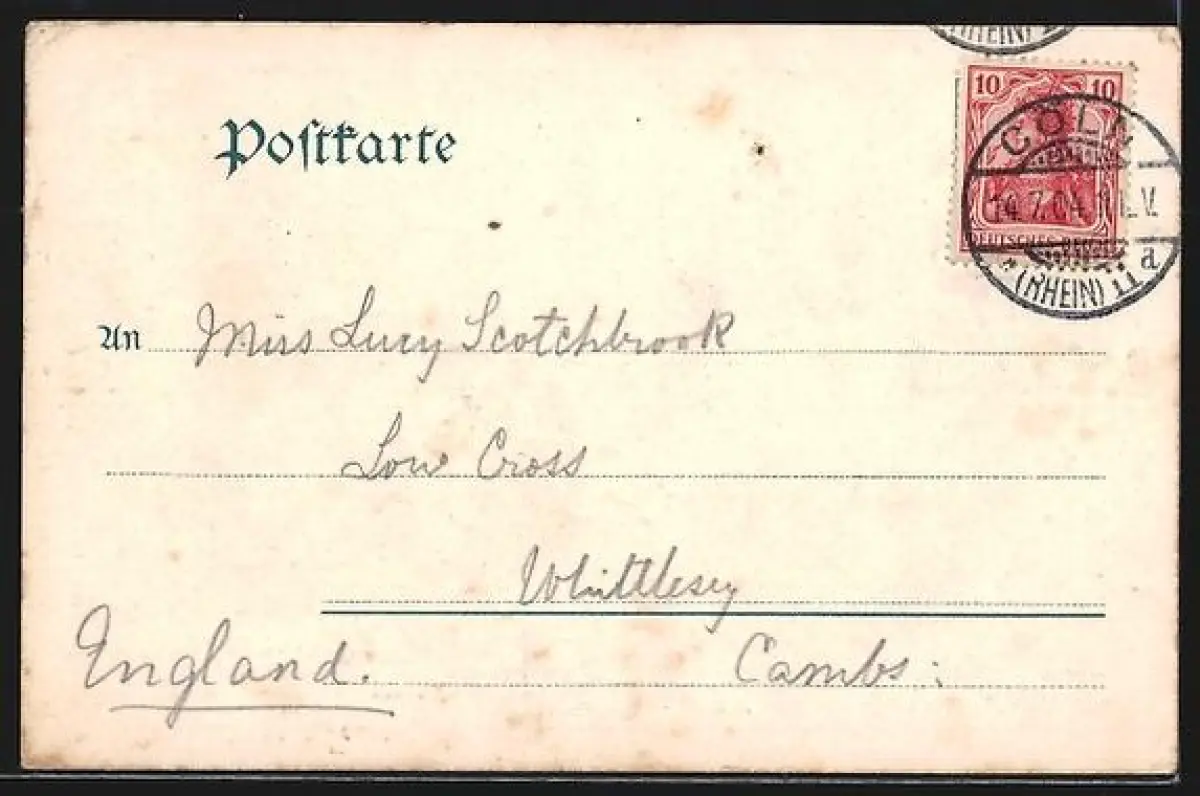 (RHEIN)
Poſtkarte
10 10
DEUTSCHES REICH
CÖLN
14.7.04. V.
* (RHEIN) 11 a
An Miss Lucy Scotchbrook
Low Cross
Whittlesey
England. Cambs: